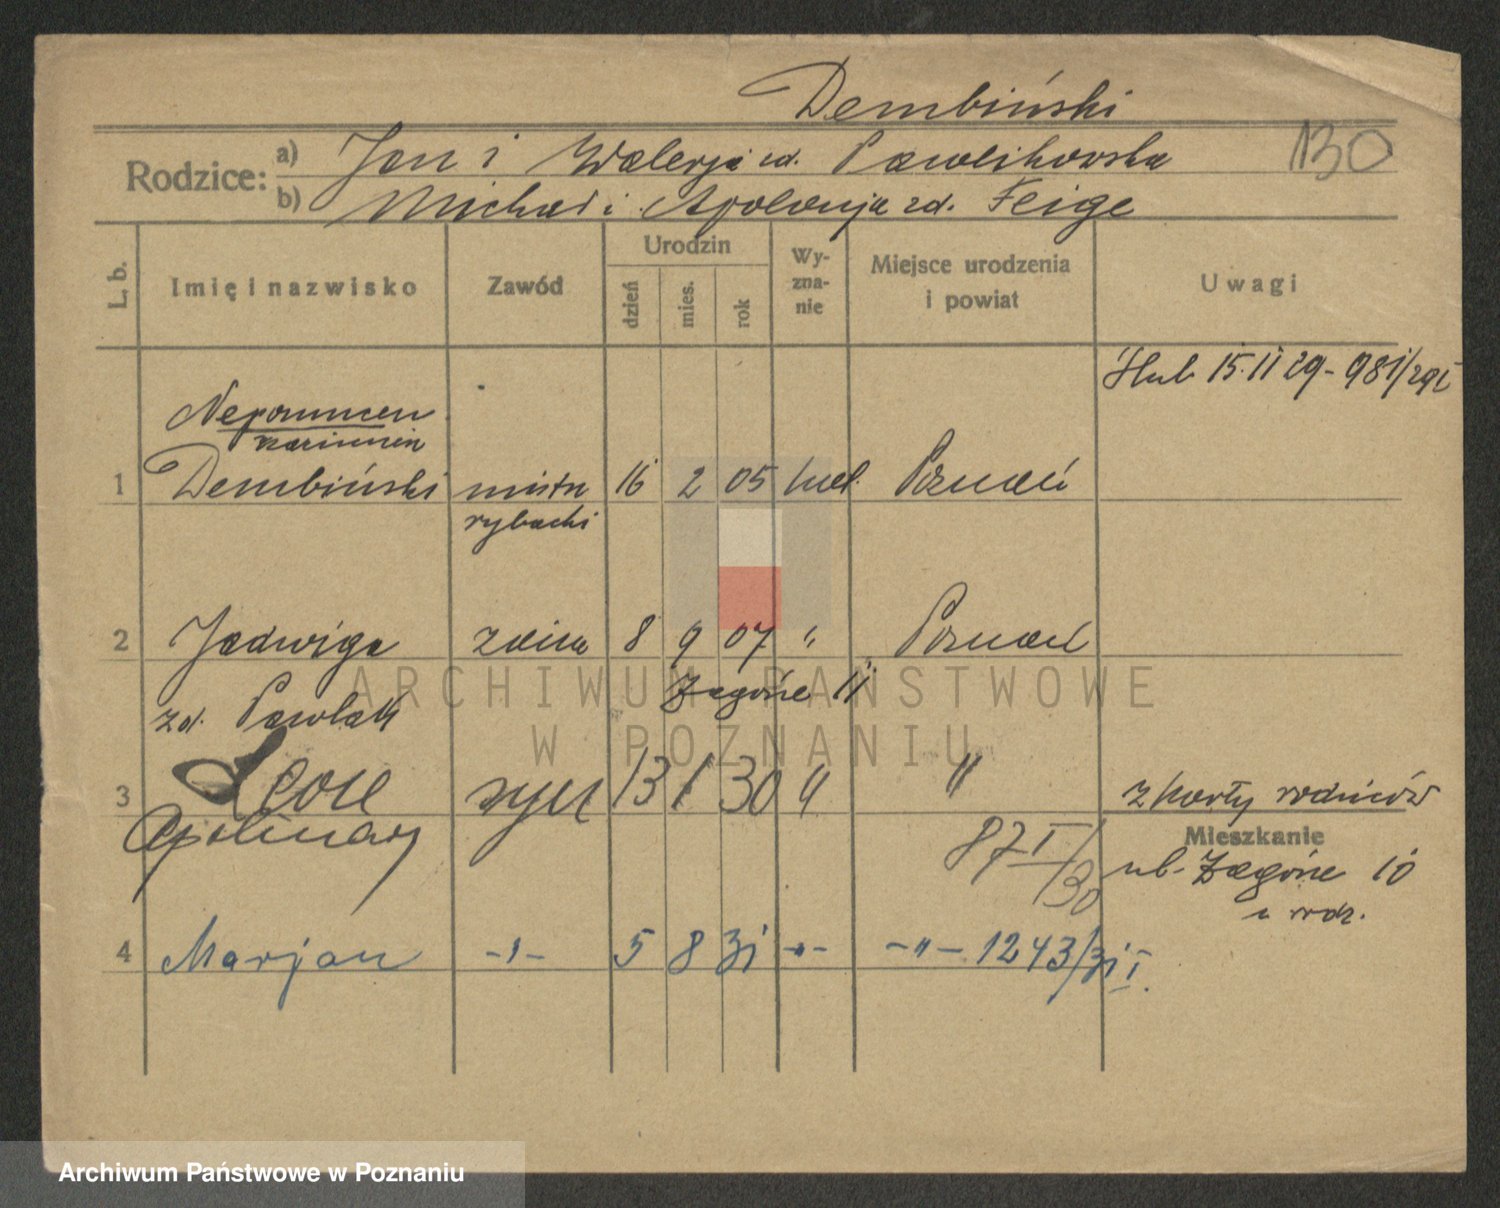 Dembiński
Rodzice: a) Jan i Walerja zd. Pawlikowska 130
b) Michał i Apolonja zd. Feige
L. b. Imię i nazwisko Zawód Urodzin dzień mies. rok Wy-zna-nie Miejsce urodzenia i powiat Uwagi
ślub 15.11 29 - 981/29I
Nepomucen
Kazimierz
1 Dembiński mistrz 16 2 05 kat. Poznań
rybacki
2 Jadwiga żona 8 9 07 " Poznań
zd. Pawlak Zagórze 11
3 Leon syn 13 1 30 " " z karty rodziców
Apolinary 87 I/30 Mieszkanie
ul. Zagórze 10
u rodz.
4 Marjan -"- 5 8 31 -"- -"- 1243/31 I.
ARCHIWUM PAŃSTWOWE
W POZNANIU
Archiwum Państwowe w Poznaniu